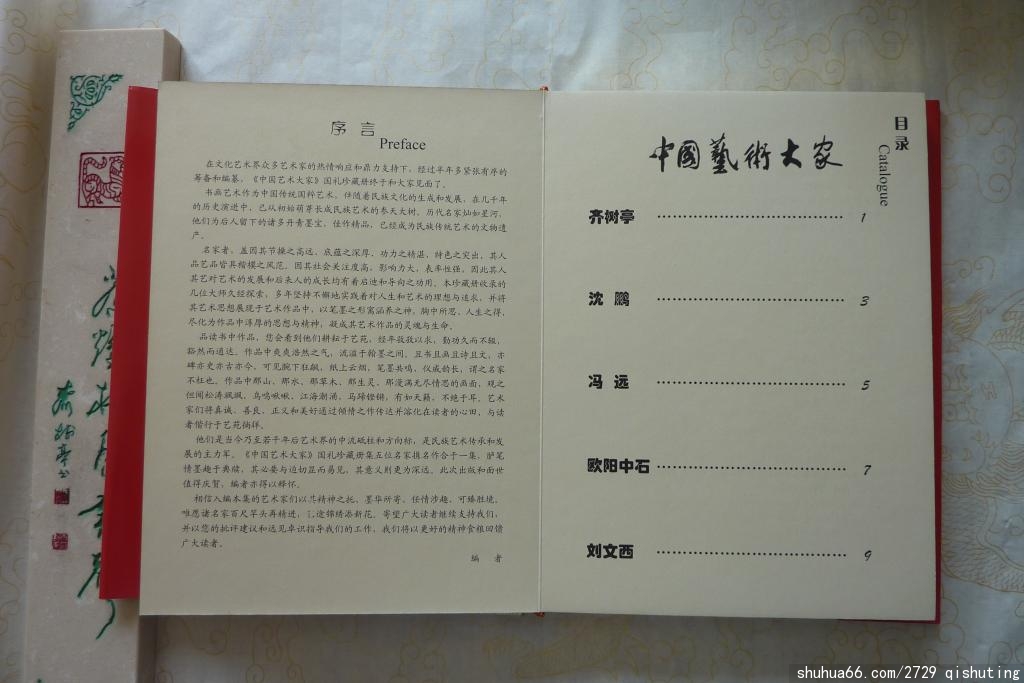 序言
Preface
在文化艺术界众多艺术家的热情响应和鼎力支持下，经过半年多紧张有序的
筹备和编纂，《中国艺术大家》国礼珍藏册终于和大家见面了。
书画艺术作为中国传统国粹艺术，伴随着民族文化的生成和发展，在几千年
的历史演进中，已从初始萌芽长成民族艺术的参天大树。历代名家灿如星河，
他们为后人留下的诸多丹青墨宝，佳作精品，已经成为民族传统艺术的文物遗
产。
名家者，盖因其节操之高远，底蕴之深厚，功力之精湛，特色之突出，其人
品艺品皆具楷模之风范。因其社会关注度高，影响力大，表率性强，因此其人
其艺对艺术的发展和后来人的成长均有着启迪和导向之功用。本珍藏册收录的
几位大师久经探索，多年坚持不懈地实践着对人生和艺术的理想与追求，并将
其艺术思想展现于艺术作品中，以笔墨之形寓涵养之神，胸中所思，人生之得，
尽化为作品中浑厚的思想与精神，凝成其艺术作品的灵魂与生命。
品读书中作品，您会看到他们耕耘于艺苑，经年孜孜以求，勤功久而不辍，
豁然而通达。作品中爽爽浩然之气，流溢于翰墨之间，且书且画且诗且文，亦
碑亦史亦古亦今，可见腕下狂飙，纸上云烟，笔墨共鸣，仪威韵长，谓之名家
不枉也。作品中那山，那水，那草木，那生灵，那漫满无尽情思的画面，观之
但闻松涛飒飒，鸟鸣啾啾，江海潮涌，马蹄铿锵，有如天籁，不绝于耳，艺术
家们将真诚、善良、正义和美好通过倾情之作传达并溶化在读者的心田，与读
者偕行于艺苑徜徉。
他们是当今乃至若干年后艺术界的中流砥柱和方向标，是民族艺术传承和发
展的主力军。《中国艺术大家》国礼珍藏册集五位名家携名作合于一集，胪笔
情墨趣于典牍，其必要与迫切显而易见，其意义则更为深远。此次出版和面世
值得庆贺，编者亦得以释怀。
相信入编本集的艺术家们以其精神之托，墨华所寄，任情涉趣，可臻胜境，
唯愿诸名家百尺竿头再精进，途锦绣添新花。寄望广大读者继续支持我们，
并以您的批评建议和远见卓识指导我们的工作，我们将以更好的精神食粮回馈
广大读者。
编 者
目录
Catalogue
中國藝術大家
齐树亭 1
沈鹏 3
冯远 5
欧阳中石 7
刘文西 9
shuhua66.com/2729 qishuting